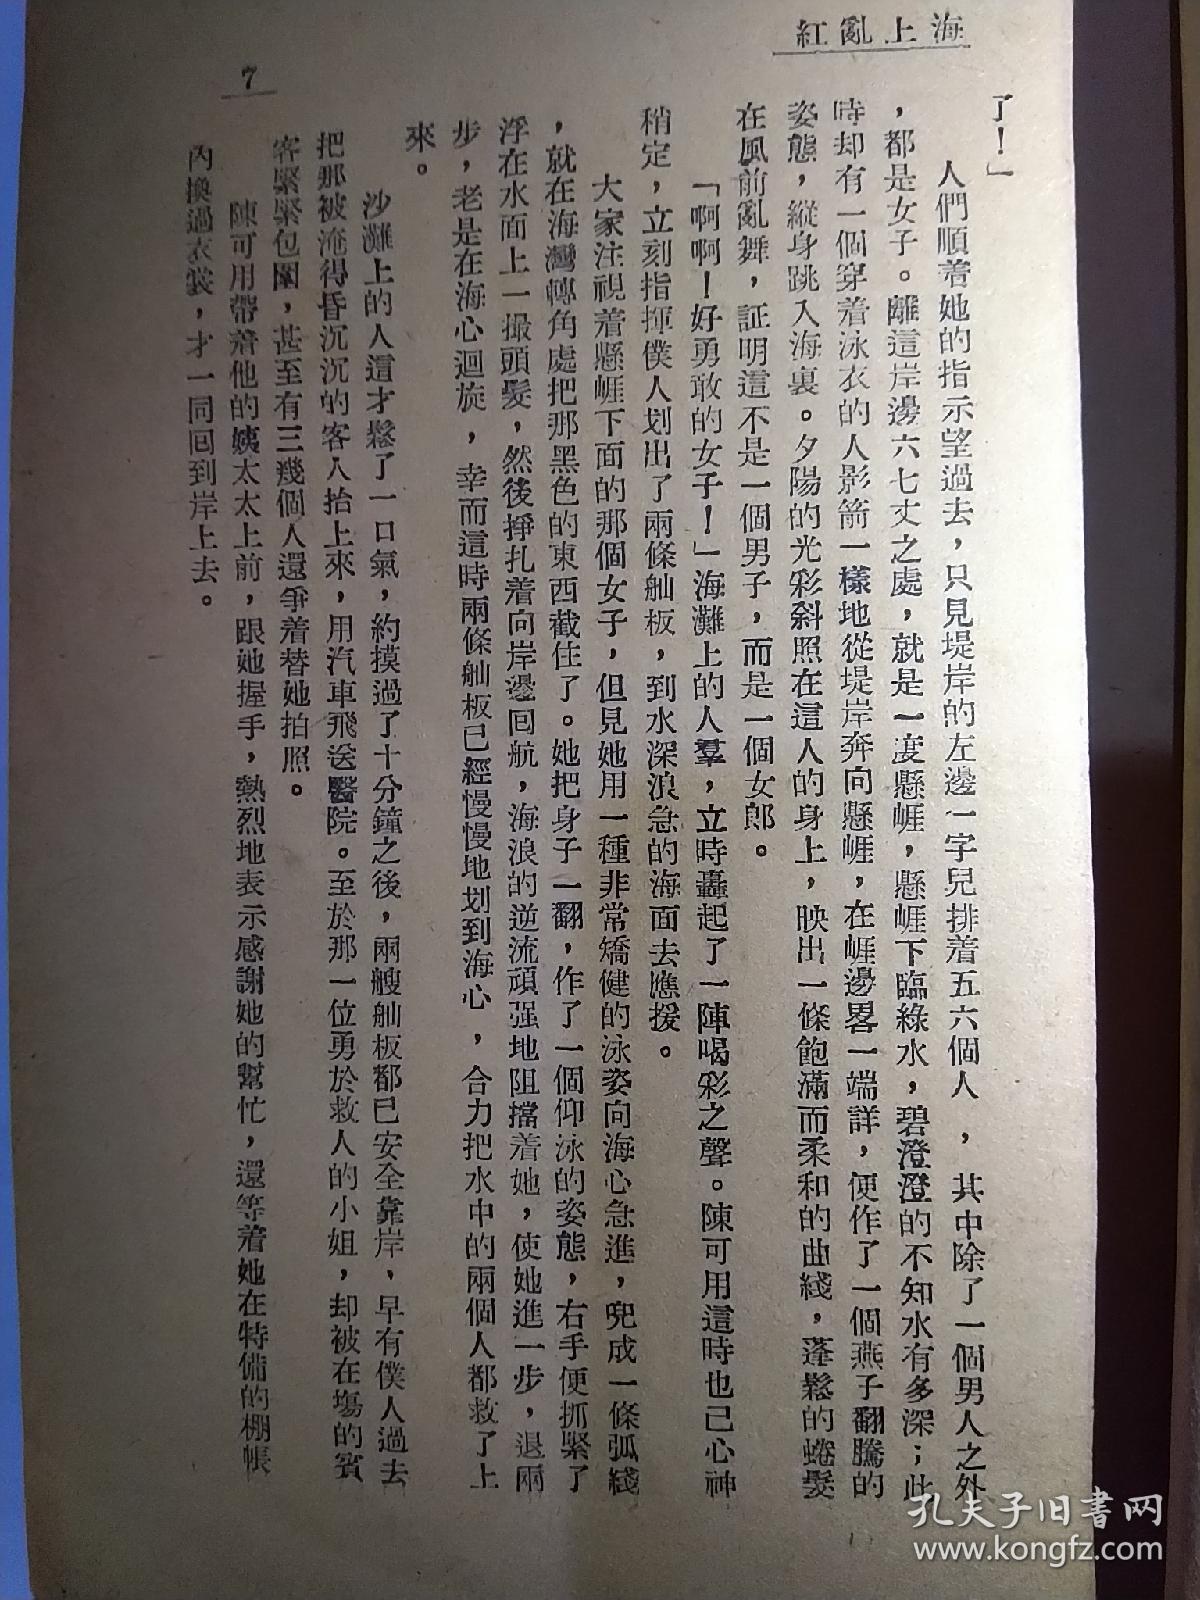 海上亂紅
7
了！」
人們順着她的指示望過去，只見堤岸的左邊一字兒排着五六個人，其中除了一個男人之外
，都是女子。離這岸邊六七丈之處，就是一度懸崕，懸崕下臨綠水，碧澄澄的不知水有多深；此
時却有一個穿着泳衣的人影箭一樣地從堤岸奔向懸崕，在崕邊畧一端詳，便作了一個燕子翻騰的
姿態，縱身跳入海裏。夕陽的光彩斜照在這人的身上，映出一條飽滿而柔和的曲綫，蓬鬆的蜷髮
在風前亂舞，証明這不是一個男子，而是一個女郎。
「啊啊！好勇敢的女子！」海灘上的人羣，立時轟起了一陣喝彩之聲。陳可用這時也已心神
稍定，立刻指揮僕人划出了兩條舢板，到水深浪急的海面去應援。
大家注視着懸崕下面的那個女子，但見她用一種非常矯健的泳姿向海心急進，兜成一條弧綫
，就在海灣轉角處把那黑色的東西截住了。她把身子一翻，作了一個仰泳的姿態，右手便抓緊了
浮在水面上一撮頭髮，然後掙扎着向岸邊囘航，海浪的逆流頑强地阻擋着她，使她進一步，退兩
步，老是在海心迴旋，幸而這時兩條舢板已經慢慢地划到海心，合力把水中的兩個人都救了上
來。
沙灘上的人這才鬆了一口氣，約摸過了十分鐘之後，兩艘舢板都已安全靠岸，早有僕人過去
把那被淹得昏沉沉的客人抬上來，用汽車飛送醫院。至於那一位勇於救人的小姐，却被在塲的賓
客緊緊包圍，甚至有三幾個人還爭着替她拍照。
陳可用帶着他的姨太太上前，跟她握手，熱烈地表示感謝她的幫忙，還等着她在特備的棚帳
內換過衣裳，才一同囘到岸上去。
孔夫子旧书网
www.kongfz.com